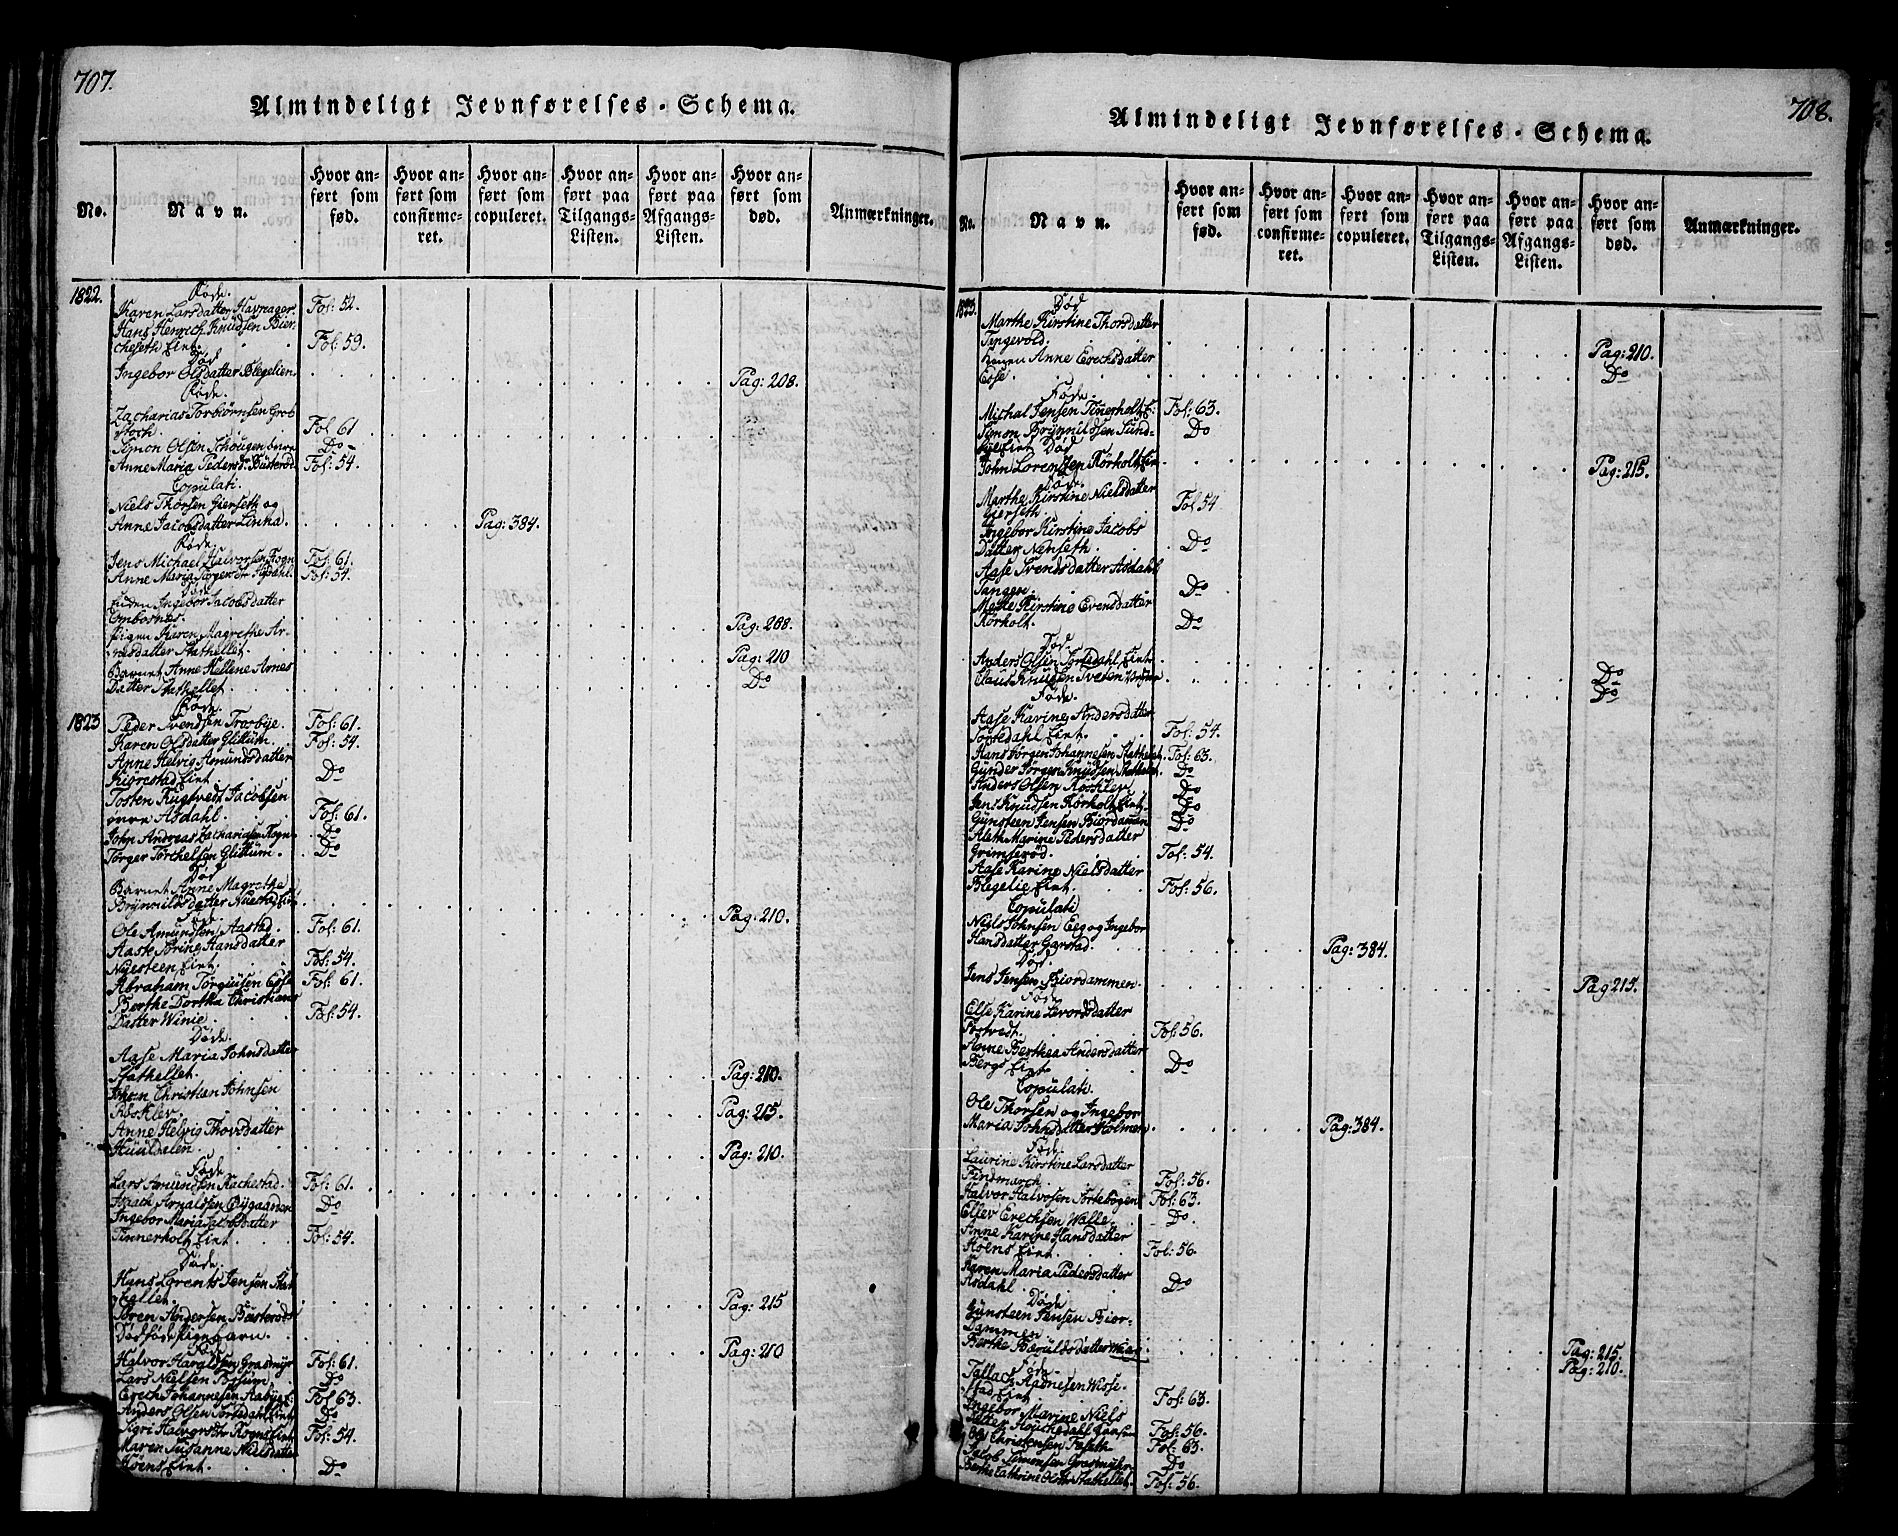 707.
Almindeligt Jevnførelses-Schema.
No. Navn. Hvor anført som fød. Hvor anført som confirmeret. Hvor anført som copuleret. Hvor anført paa Tilgangs-Listen. Hvor anført paa Afgangs-Listen. Hvor anført som død. Anmærkninger.
1822. Føde.
Karen Larsdatter Havrager. Fol: 52.
Hans Henrich Knudsen Bier-
cheseth Eint. Fol: 59.
Død
Ingebor Olsdatter Blegelien. Pag: 208.
Føde.
Zacharias Torbiørnsen Grob-
stoch. Fol 61
Simon Olsen Schougen Do
Anne Maria Pedersdr Busterød Fol: 54.
Copulati.
Niels Thorsen Gierseth og
Anne Jacobsdatter Linna. Pag: 384.
Føde.
Jens Michael Halvorsen Rogn Fol: 61.
Anne Maria Asdahl. Fol: 54.
Enken Ingebor Jacobsdatter
Ombosnes. Pag: 208.
Pigen Karen Magrethe Ar-
nesdatter Stathellet. Pag: 210
Barnet Anne Hellene Arnes
Datter Stathellet. Do
Føde.
1823 Peder Svendsen Trosbye. Fol: 61.
Karen Olsdatter Glittum. Fol: 54.
Anne Helvig Amundsdatter
Kiørestad Eint. Do
Tosten Rugtvedt Jacobsen
øvre Asdahl. Fol: 61.
John Andreas Zachariasen Rogn Do
Torger Torchelsen Glittum. Do
Død
Barnet Anne Magrethe
Brynnilds datter Nuestad Pag: 210.
Føde.
Ole Amundsen Aastad. Fol: 61.
Aaste Torine Hansdatter
Nuesteen Eint. Fol: 54.
Abraham Torgiusen Esse Fol: 61.
Berthe Dorthea Christians
Datter Winie. Fol: 54.
Døde.
Aase Maria Johnsdatter
Stathellet. Pag: 210.
Johan Christian Johnsen
Rosklev. Pag: 215.
Anne Helvig Thovsdatter
Huuldalen. Pag: 210.
Føde
Lars Amundsen Kachestad. Fol: 61.
Isaach Arnoldsen Øygaarden Do
Ingebor Maria Jacobsdatter
Tinnerholt Eint. Fol: 54.
Døde.
Hans Lorents Jensen Stat
hellet. Pag: 215
Søren Andersen Busterøds
Dødføde Pigebarn. Pag: 210
Føde
Halvor Haraldsen Grasmyr Fol: 61.
Lars Nielsen Fossum. Do
Erech Johannesen Aabye Fol: 63.
Anders Olsen Tortedahl Eint Do
Sigri Halvorsdr Rogns Eint Fol: 54.
Maren Susanne Nielsdatter
Hoens Eint. Do
708.
Almindeligt Jevnførelses-Schema.
No. Navn. Hvor anført som fød. Hvor anført som confirmeret. Hvor anført som copuleret. Hvor anført paa Tilgangs-Listen. Hvor anført paa Afgangs-Listen. Hvor anført som død. Anmærkninger.
1823. Død
Marthe Kirstine Thorsdatter
Tengevold. Pag: 210.
Anne Erechsdatter
Esse. Do
Føde.
Michal Jensen Tinerholt Fol: 63.
Simon Brynnildsen Sund-
bye Eint Do
Død
John Lorentzen Rørholt Pag: 215.
Føde.
Marthe Kirstine Nielsdatter
Gierseth. Fol 54
Ingebor Kirstine Jacobs
Datter Nenseth. Do
Aase Svendsdatter Asdahl
Tangen. Do
Mette Kirstine Evensdatter
Rørholt. Do
Død.
Anders Olsen Tortedahl Eint Do
Claus Knudsen Tveten Do
Føde.
Aase Karine Andersdatter
Tortedahl Eint. Fol: 54.
Hans Jørgen Johannesen Stathellet. Fol: 63.
Gunder Jørgen Knudsen Stathellet. Do
Anders Olsen Rosklev Do
Jens Knudsen Rørholt Eint. Do
Gunsteen Jensen Biordammen Do
Aleth Marine Pedersdatter
Grimserød. Fol: 54.
Aase Karine Nielsdatter
Blegelie Eint. Fol: 56.
Copulati
Niels Johnsen Eeg og Ingebor
Hansdatter Garstad. Pag: 384.
Død.
Jens Jensen Biordammen. Pag 215.
Føde
Else Karine Levordsdatter
Tostvedt. Fol: 56.
Anne Berthea Andersdatter
Bergs Eint Do
Copulati.
Ole Thorsen og Ingebor
Maria Johnsdatter Holmen. Pag: 384.
Føde.
Laurine Kirstine Larsdatter
Findmarch. Fol: 56.
Halvor Halvosen Tortebogen Fol: 63.
Ellev Erechsen Walle. Do.
Anne Karine Hansdatter
Hoens Eint. Fol: 56.
Karen Maria Pedersdatter
Asdahl. Do
Døde
Gunsteen Jensen Bior-
dammen Pag: 215.
Berthe Bærulds datter Pag: 210.
Føde.
Tallach Aadnesen Wisse-
stad Eint Fol: 63.
Ingebor Marine Niels
datter Fol: 56.
Ole Christensen Faseth Fol: 63.
Jacob Simonsen Grasmyhr Do
Berthe Cathrine Olsdtr Stathellet. Fol: 56.